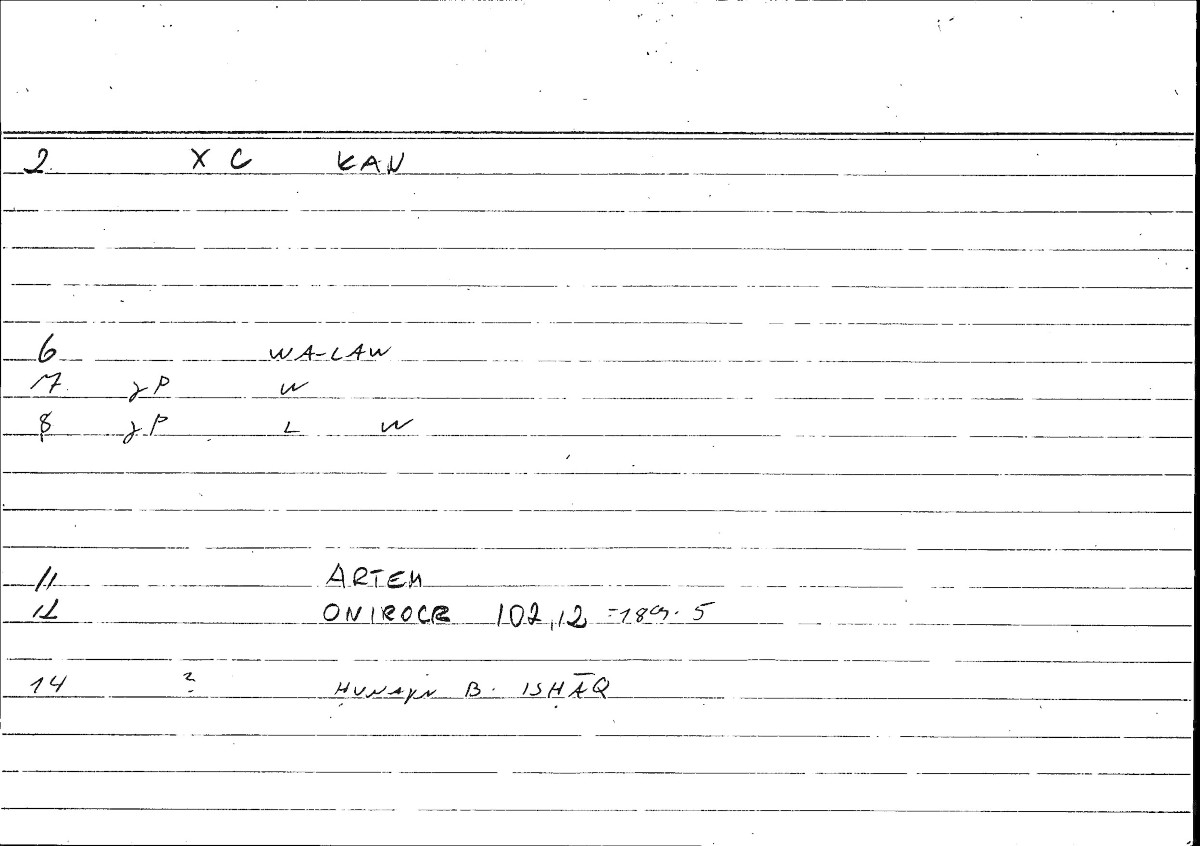 2 X C KAN
6 WA-LAW
7 γP W
8 γP L W
11 ARTEM
12 ONIROCR 102,12 = 189.5
14 ? ḤUNAYN B. ISḤĀQ